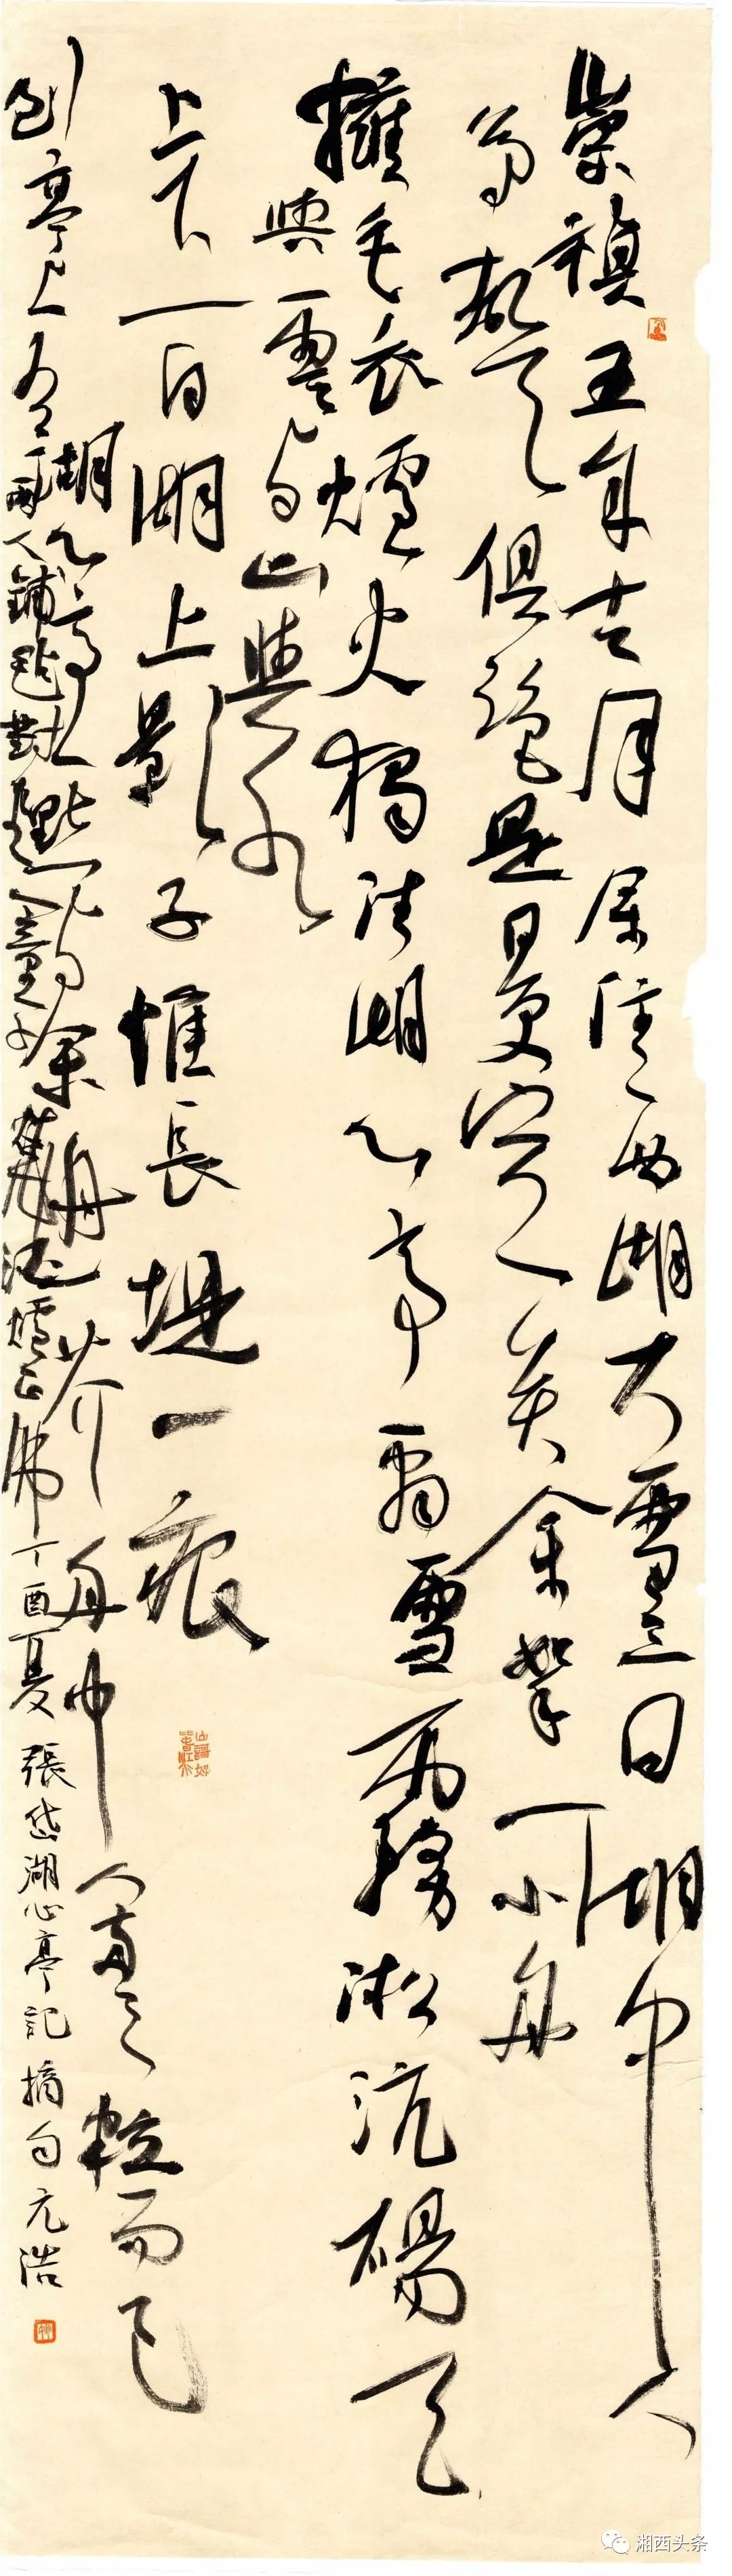 崇禎五年十二月余住西湖大雪三日湖中人
鳥聲俱絕是日更定矣余拏一小舟
擁毛衣爐火獨往湖心亭看雪霧淞沆碭天
與雲與山與水
上下一白湖上影子惟長堤一痕
湖心亭一點與余舟一芥舟中人兩三粒而已
到亭上有兩人鋪氈對坐一童子燒酒爐正沸丁酉夏張岱湖心亭記摘句元浩
湘西头条